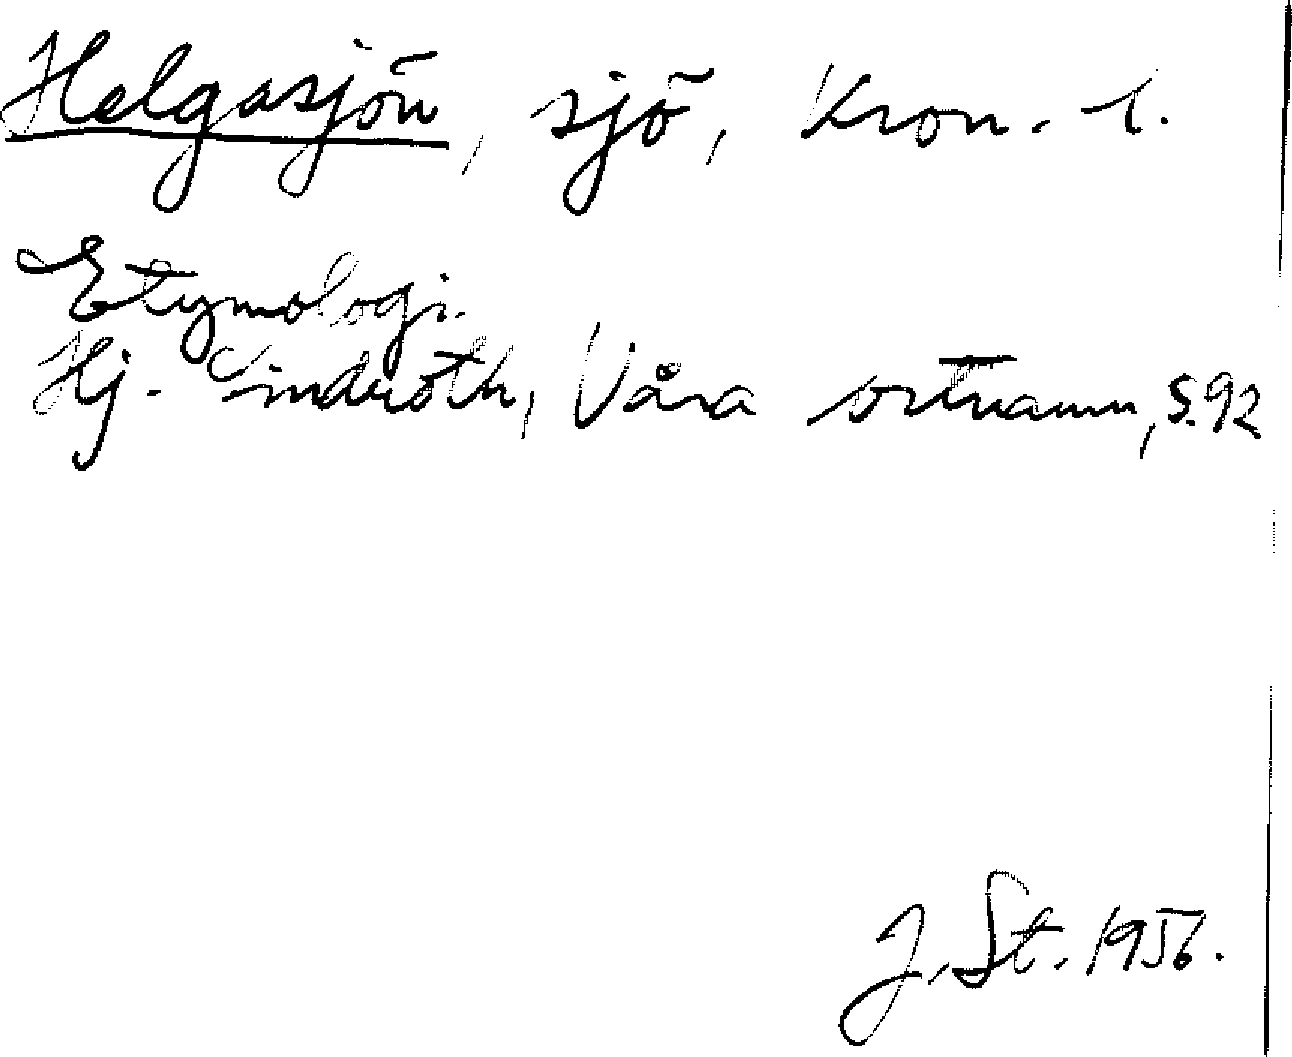 Helgasjön, sjö, Kron. l.
Etymologi.
Hj. Lindroth, Våra ortnamn, s. 92
J. St. 1956.